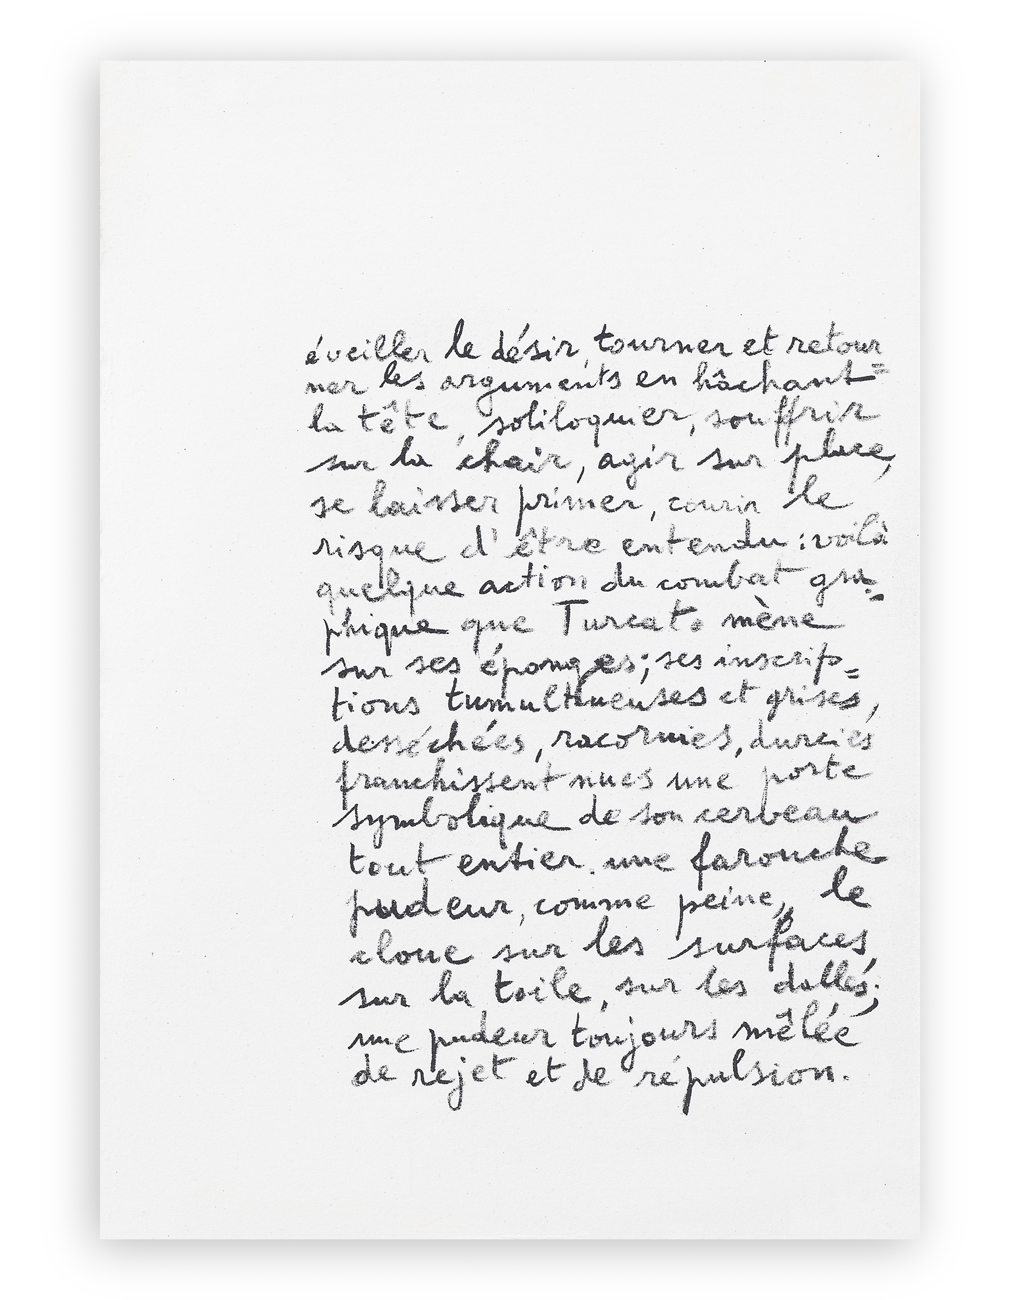 éveiller le désir, tourner et retour
ner les arguments en hâchant=
la tête, soliloquier, souffrir
sur la chair, agir sur place,
se laisser primer, courir le
risque d'être entendu : voilà
quelque action du combat gra=
phique que Turcato mène
sur ses éponges; ses inscrip=
tions tumultueuses et grises,
desséchées, racornies, durcies
franchissent nues une porte
symbolique de son cerveau
tout entier. une farouche
pudeur, comme peine, le
cloue sur les surfaces,
sur la toile, sur les dalles;
une pudeur toujours mêlée
de rejet et de répulsion.